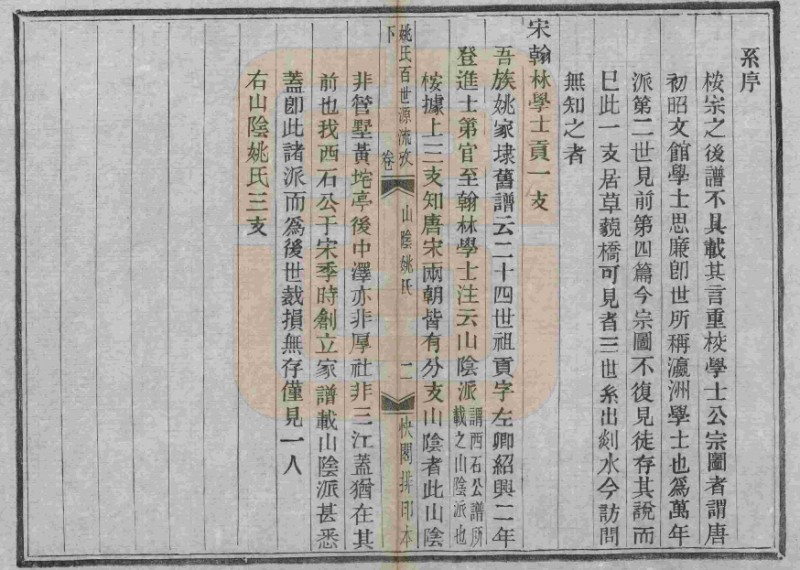 系序
桉宗之後譜不具載其言重梭學士公宗圖者謂唐
初昭文館學士思廉卽世所稱瀛洲學士也爲萬年
派第二世見前第四篇今宗圖不復見徒存其說而
巳此一支居草藐橋可見者三世系出剡水今訪問
無知之者
宋翰林學士貢一支
吾族姚家埭舊譜云二十四世祖貢字左卿紹興二年
登進士第官至翰林學士注云山陰派謂西石公譜所
載之山陰派也
桉據上三支知唐宋兩朝皆有分支山陰者此山陰
姚氏百世源流攷 卷
下
山陰姚氏
二
快閣排印本
非管墅黃垞亭後中澤亦非厚社非三江蓋猶在其
前也我西石公于宋季時創立家譜載山陰派甚悉
蓋卽此諸派而爲後世裁損無存僅見一八
右山陰姚氏三支